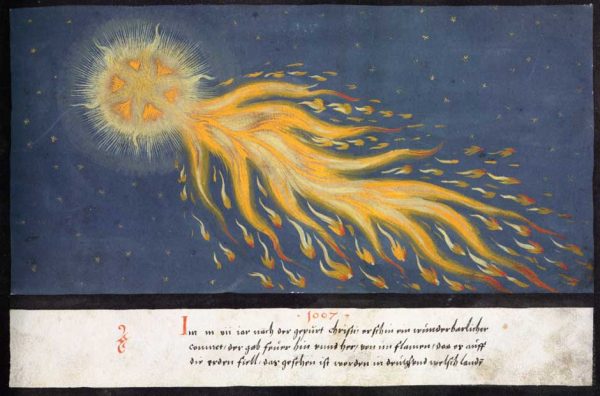 · 1007 ·
Im m vii iar nach der gepürt Christi erschin ein wunderbarlicher
Comaet · der gab feuer hin vnnd her, von im flamen, das er auff
die erden fiell, das gesehen ist worden in welsch landt